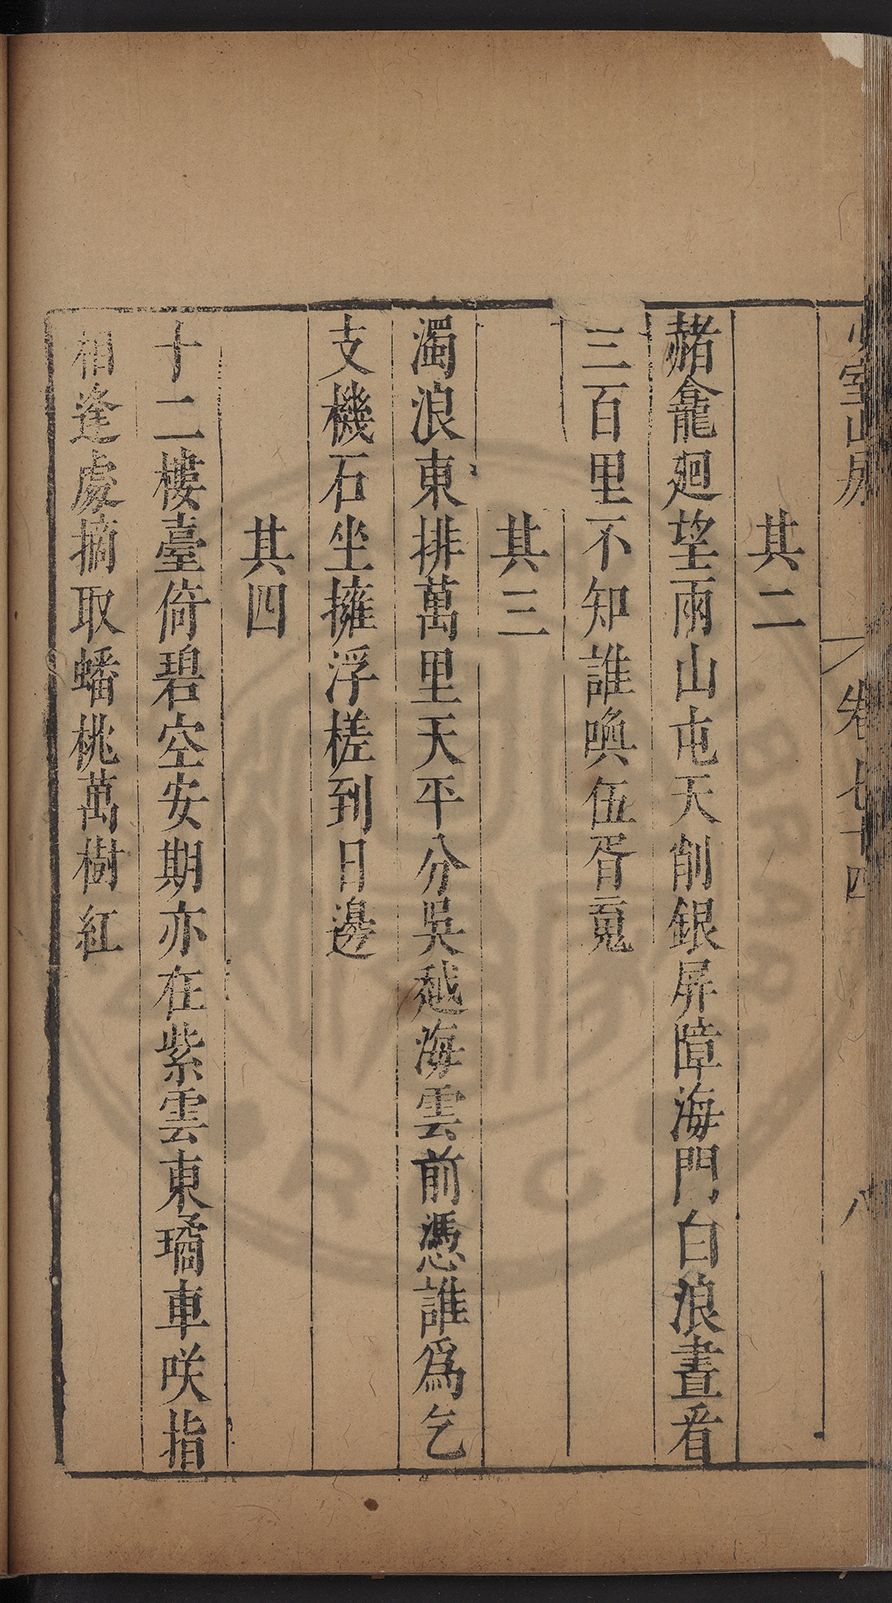 少室山房
卷七十四
八
其二
赭龕廻望兩山屯天削銀屏障海門白浪晝看
三百里不知誰喚伍胥䰟
其三
濁浪東排萬里天平分吳越海雲前憑誰爲乞
支機石坐擁浮槎到日邊
其四
十二樓臺倚碧空安期亦在紫雲東璚車咲指
相逢處摘取蟠桃萬樹紅